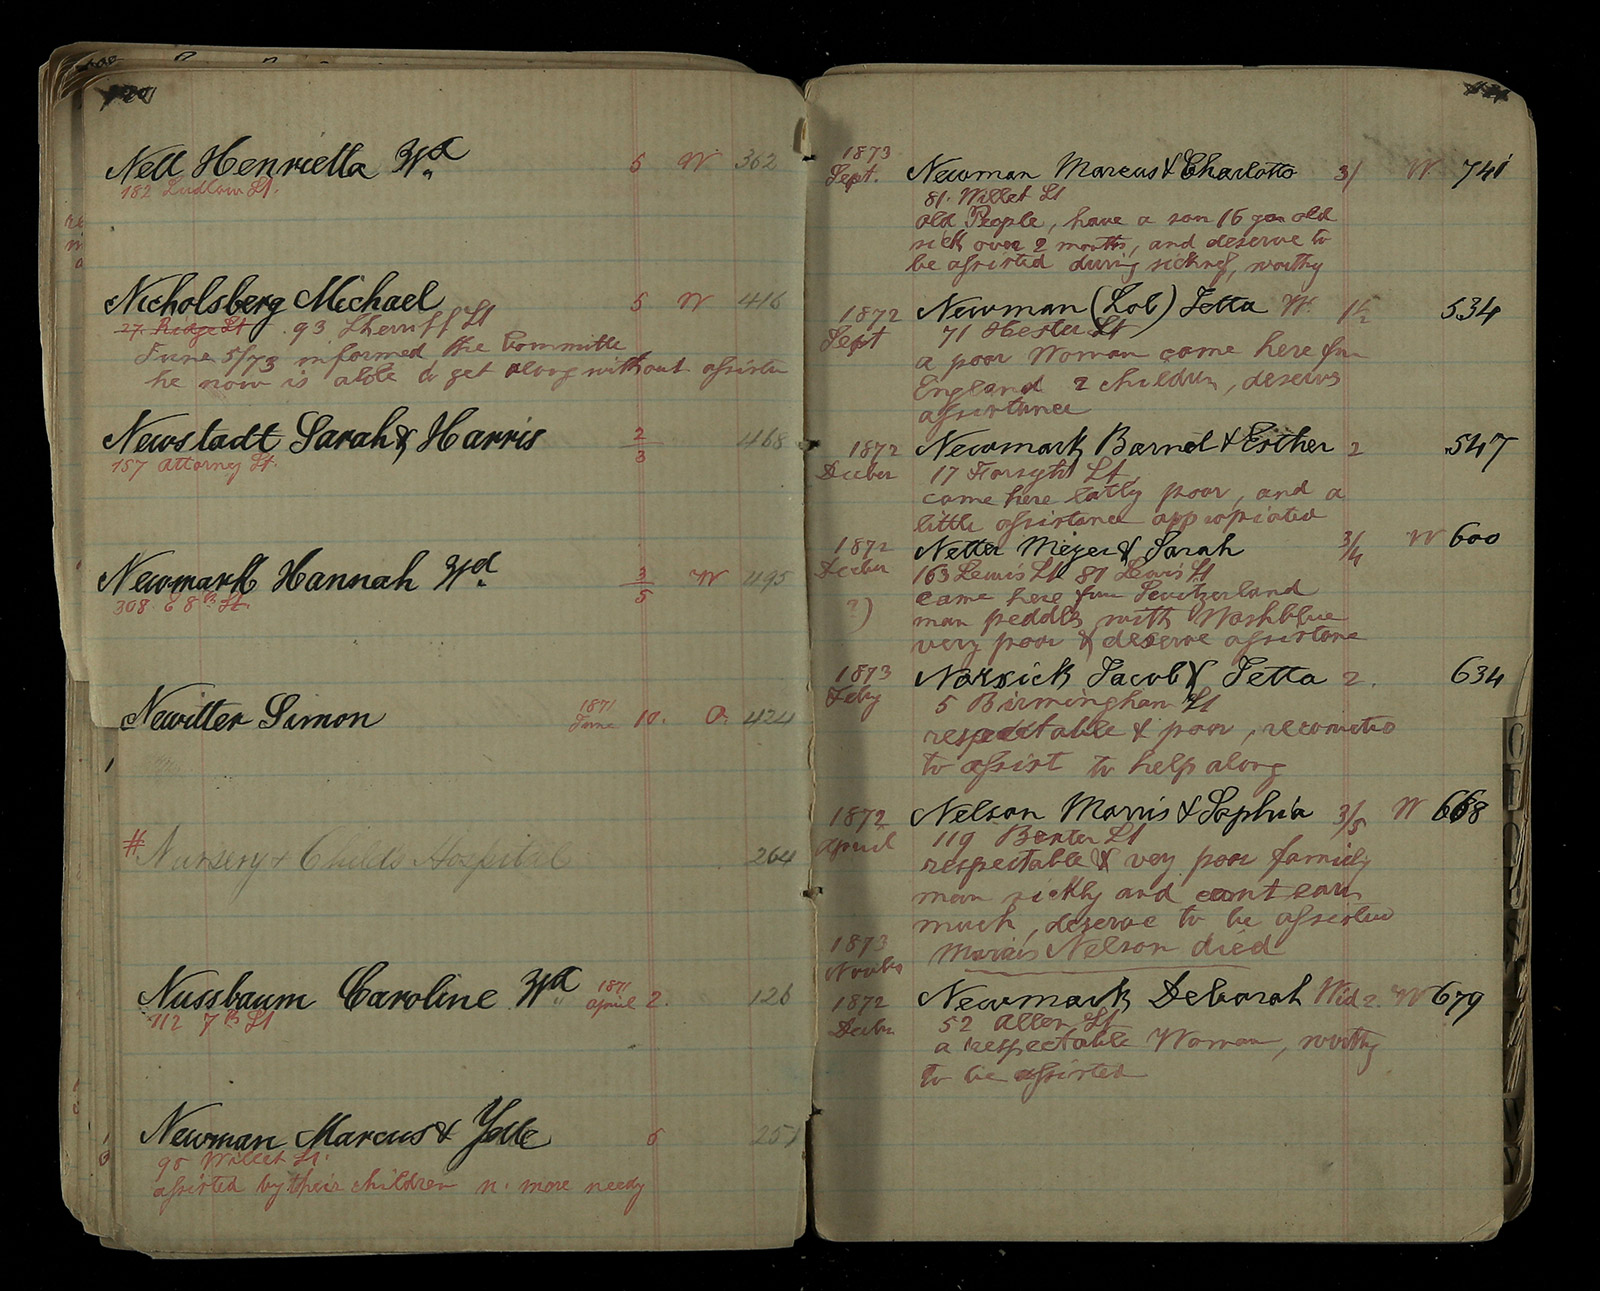 Nell Henrietta Wd. 5 W 362
182 Ludlow St.
Nicholsberg Michael 5 W 416
27 Ridge St. 93 Sherriff St
June 5/73 informed the Committe
he now is able to get along without assistce
Newstadt Sarah & Harris 2/3 468
157 Attorney St.
Newmark Hannah Wd. 3/5 W 495
308 E 8th St.
Newitter Simon 1871 June 10. O. 424
# Nursery & Childs Hospital 264
Nussbaum Caroline Wd 1871 April 2. 126
112 7th St
Newman Marcus & Yette 6 257
90 Willet St.
assisted by their children n. more needy
1873 Sept. Newman Marcus & Charlotte 3/ W 741
81. Willet St
old People, have a son 16 year old
sick over 2 months, and deserve to
be assisted during sickness, worthy
1872 Sept Newman (Lob) Jetta W. 1½ 534
71 Hester St
a poor Woman came here from
England 2 children, deserves
assistance
1872 Decber Newmark Barnet & Esther 2 547
17 Forsyth St
came here latly poor, and a
little assistance appropiated
1872 Decber Netter Meyer & Sarah 3/4 W 600
163 Lewis St 87 Lewis St
came here from Switzerland
?) man peddles with Washblue
very poor & deserve assistance
1873 Feby Norsick Jacob & Jetta 2. 634
5 Birmingham St
respectable & poor,
to assist to help along
1872 April Nelson Morris & Sophia 3/5 W 668
119 Baxter St
respectable & very poor family
man sickly and cant earn
much, deserve to be assisted
1873 Novbr Morris Nelson died
1872 Decbr Newmark Deborah Wid 2. W 679
52 Allen St
a respectable Woman, worthy
to be assisted